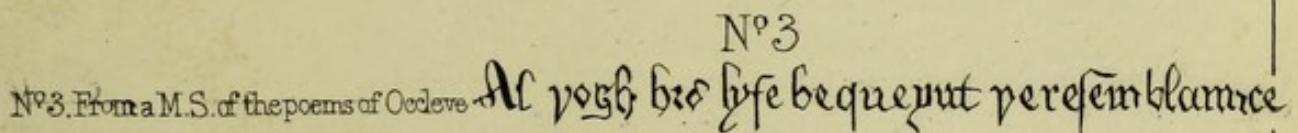 Nº 3
Nº 3. From a M.S. of the poems of Occleve Al yogh his lyfe be queynt ye reſēmblaunce